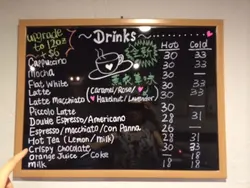 upgrade
to 12oz
+$6
Drinks
Hot Cold
Cappuccino 30 33
Mocha 33
Flat White 30
Latte (Caramel/Rose/ 30 33
Latte Macchiato Hazelnut/Lavender) 30
Piccolo Latte 30
Double Espresso/Americano 28 31
Espresso/macchiato/Con Panna 26
Hot Tea (Lemon/Milk) 28 31
Crispy Chocolate 30 33
Orange Juice / Coke 18
Milk 18 18